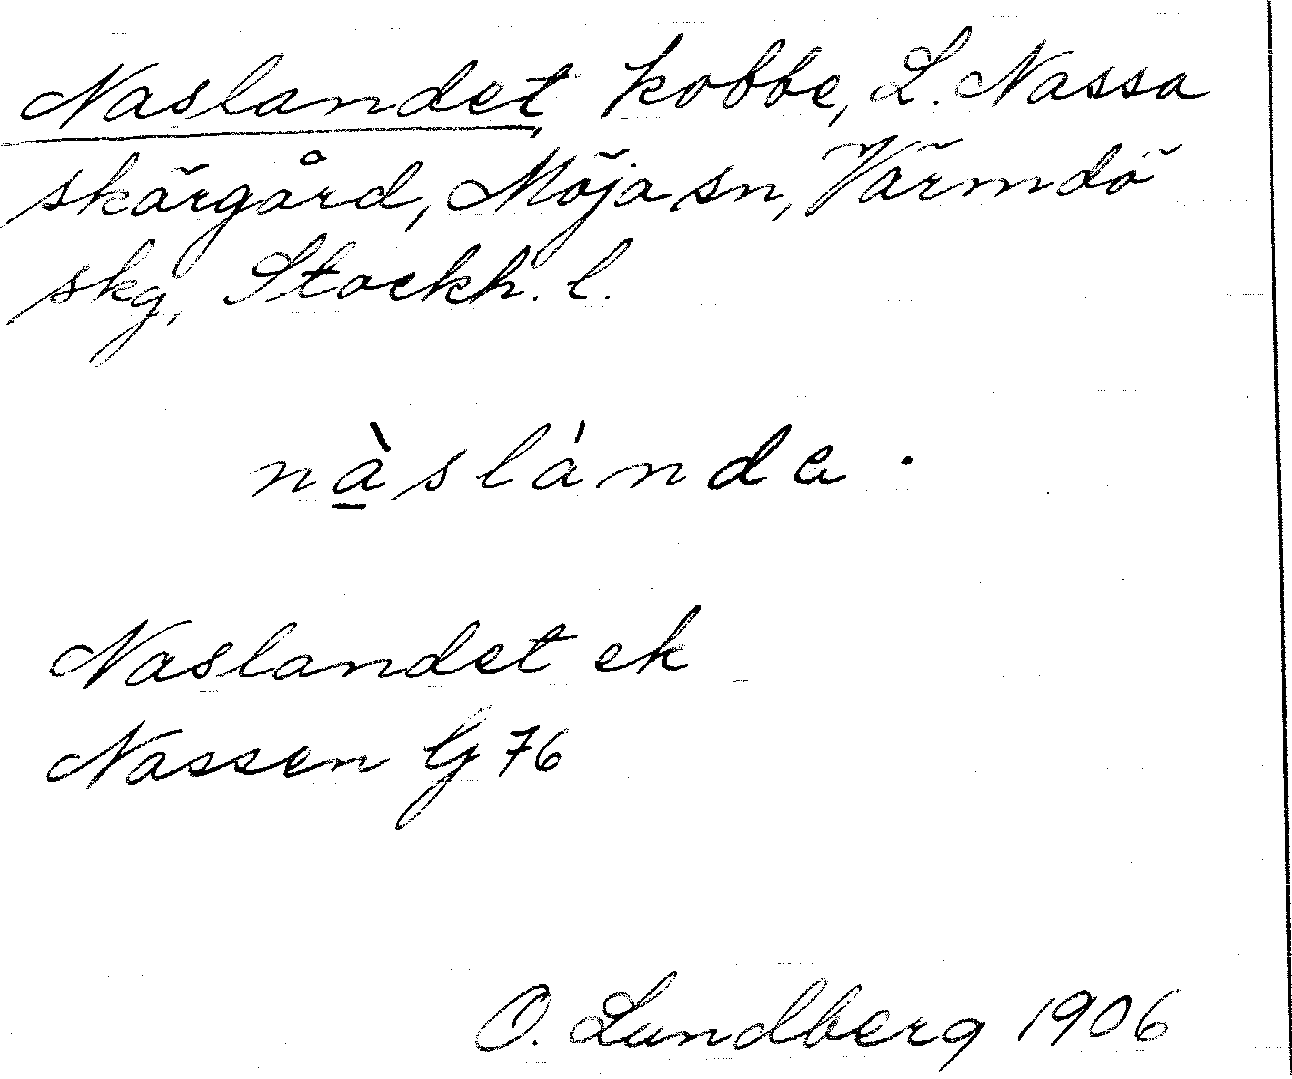 Naslandet, kobbe, L. Nassa
skärgård, Möja sn, Värmdö
skg, Stockh. l.
nà̱slánde.
Naslandet ek
Nassen G 76
O. Lundberg 1906